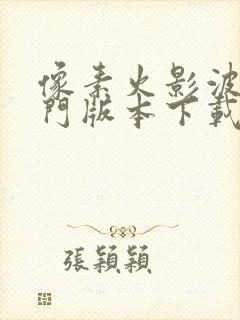 像素火影波
門版本下載
張穎穎